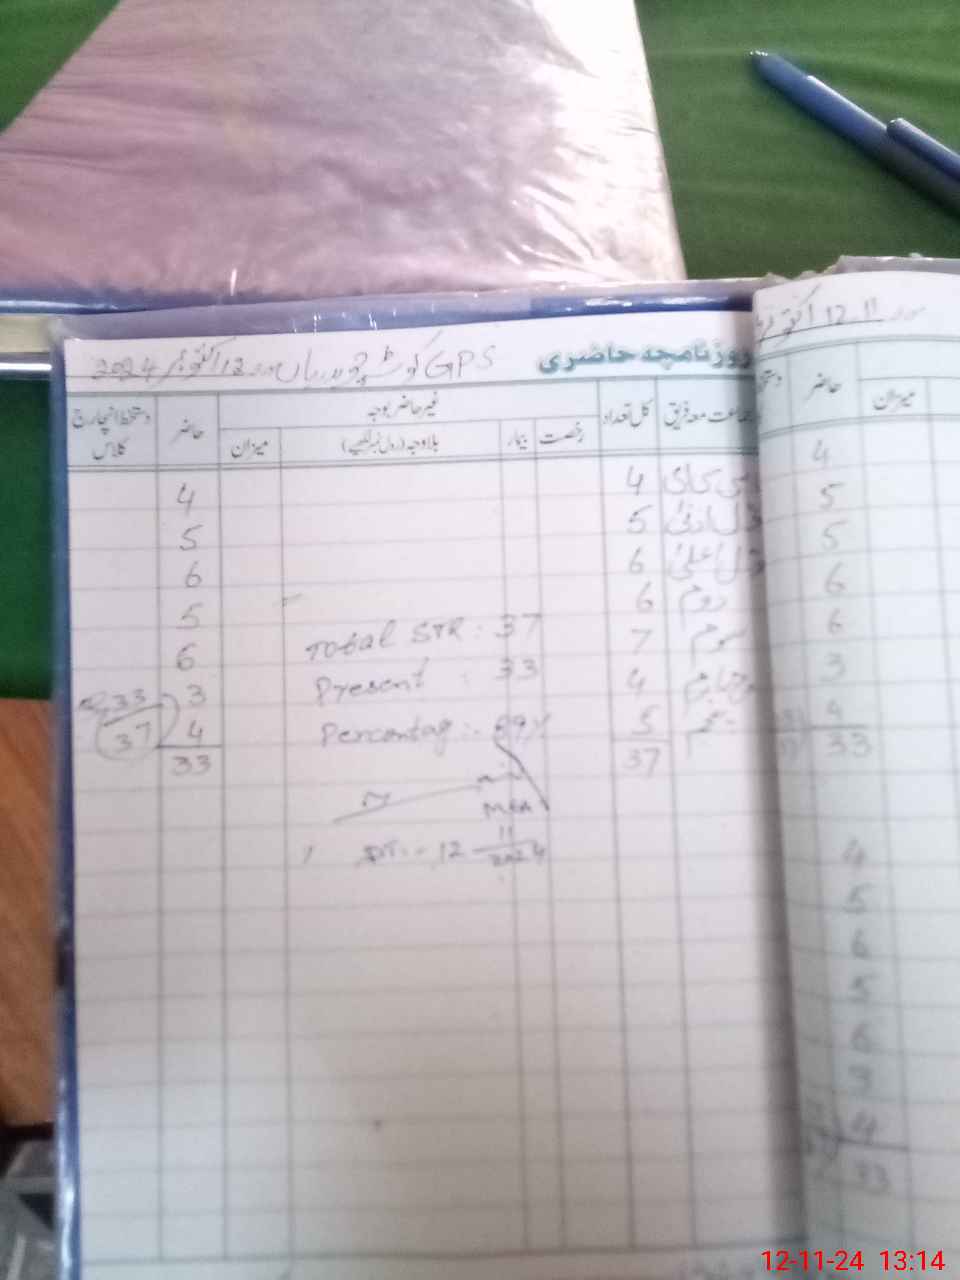 GPS کوٹ چوہدریاں مورخہ 12 اکتوبر 2024
روزنامچہ حاضری
جماعت معہ فریق کل تعداد غیر حاضر بوجہ حاضر دستخط انچارج کلاس
رخصت بیمار بلاوجہ (رول نمبر لکھیے) میزان
کچی 4 4
اول ادنیٰ 5 5
اول اعلیٰ 6 6
دوم 6 5
سوم 7 6
چہارم 4 3
پنجم 5 4
37 33
33
37
Total STR: 37
Present : 33
Percentag :- 89%
MEA
DT:- 12
11
2024
12 اکتوبر
حاضر میزان
4
5
5
6
6
3
4
33
4
5
6
5
6
3
4
33
12-11-24 13:14